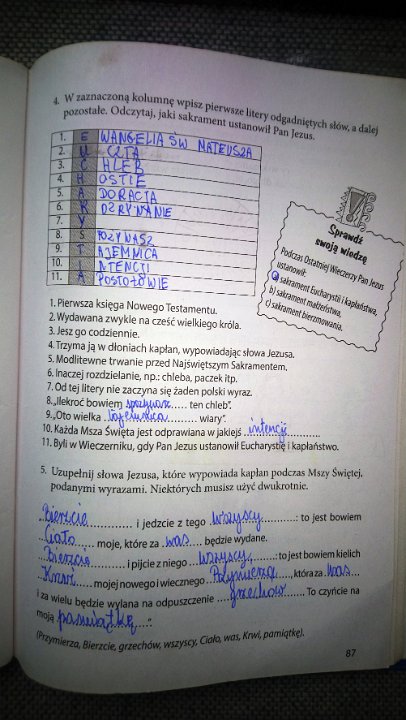 4. W zaznaczoną kolumnę wpisz pierwsze litery odgadniętych słów, a dalej
pozostałe. Odczytaj, jaki sakrament ustanowił Pan Jezus.
1. E WANGELIA ŚW MATEUSZA
2. U CZTA
3. C HLEB
4. H OSTIE
5. A DORACJA
6. R OZRYWANIE
7. Y
8. S POŻYWASZ
9. T AJEMNICA
10. I NTENCJI
11. A POSTOŁOWIE
Sprawdź
swoją wiedzę
Podczas Ostatniej Wieczerzy Pan Jezus
ustanowił:
a) sakrament Eucharystii i kapłaństwa,
b) sakrament małżeństwa,
c) sakrament bierzmowania.
1. Pierwsza księga Nowego Testamentu.
2. Wydawana zwykle na cześć wielkiego króla.
3. Jesz go codziennie.
4. Trzyma ją w dłoniach kapłan, wypowiadając słowa Jezusa.
5. Modlitewne trwanie przed Najświętszym Sakramentem.
6. Inaczej rozdzielanie, np.: chleba, paczek itp.
7. Od tej litery nie zaczyna się żaden polski wyraz.
8. „Ilekroć bowiem spożywasz ..... ten chleb".
9. „Oto wielka tajemnica ..... wiary".
10. Każda Msza Święta jest odprawiana w jakiejś intencji
11. Byli w Wieczerniku, gdy Pan Jezus ustanowił Eucharystię i kapłaństwo.
5. Uzupełnij słowa Jezusa, które wypowiada kapłan podczas Mszy Świętej,
podanymi wyrazami. Niektórych musisz użyć dwukrotnie.
„Bierzcie i jedzcie z tego wszyscy: to jest bowiem
Ciało moje, które za was będzie wydane.
Bierzcie i pijcie z niego wszyscy: to jest bowiem kielich
Krwi mojej nowego i wiecznego Przymierza, która za was
i za wielu będzie wylana na odpuszczenie grzechów. To czyńcie na
moją pamiątkę".
(Przymierza, Bierzcie, grzechów, wszyscy, Ciało, was, Krwi, pamiątkę).
87